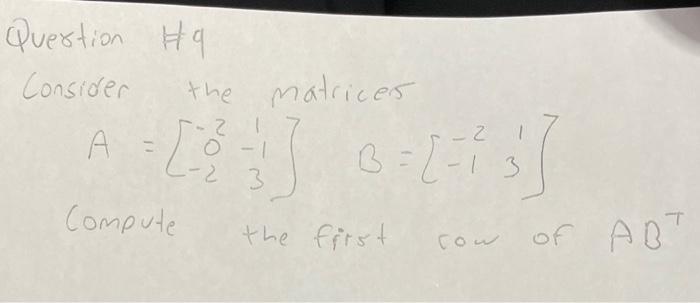 Question #9
Consider the matrices
A = [-2 1
0 -1
-2 3] B = [-2 1
-1 3]
Compute the first row of AB^T